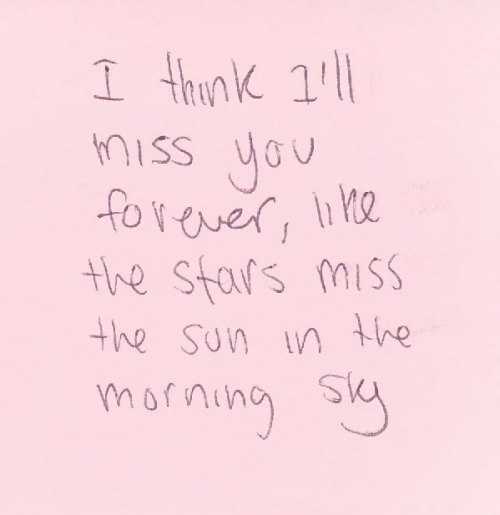 I think I'll
miss you
forever, like
the stars miss
the sun in the
morning sky